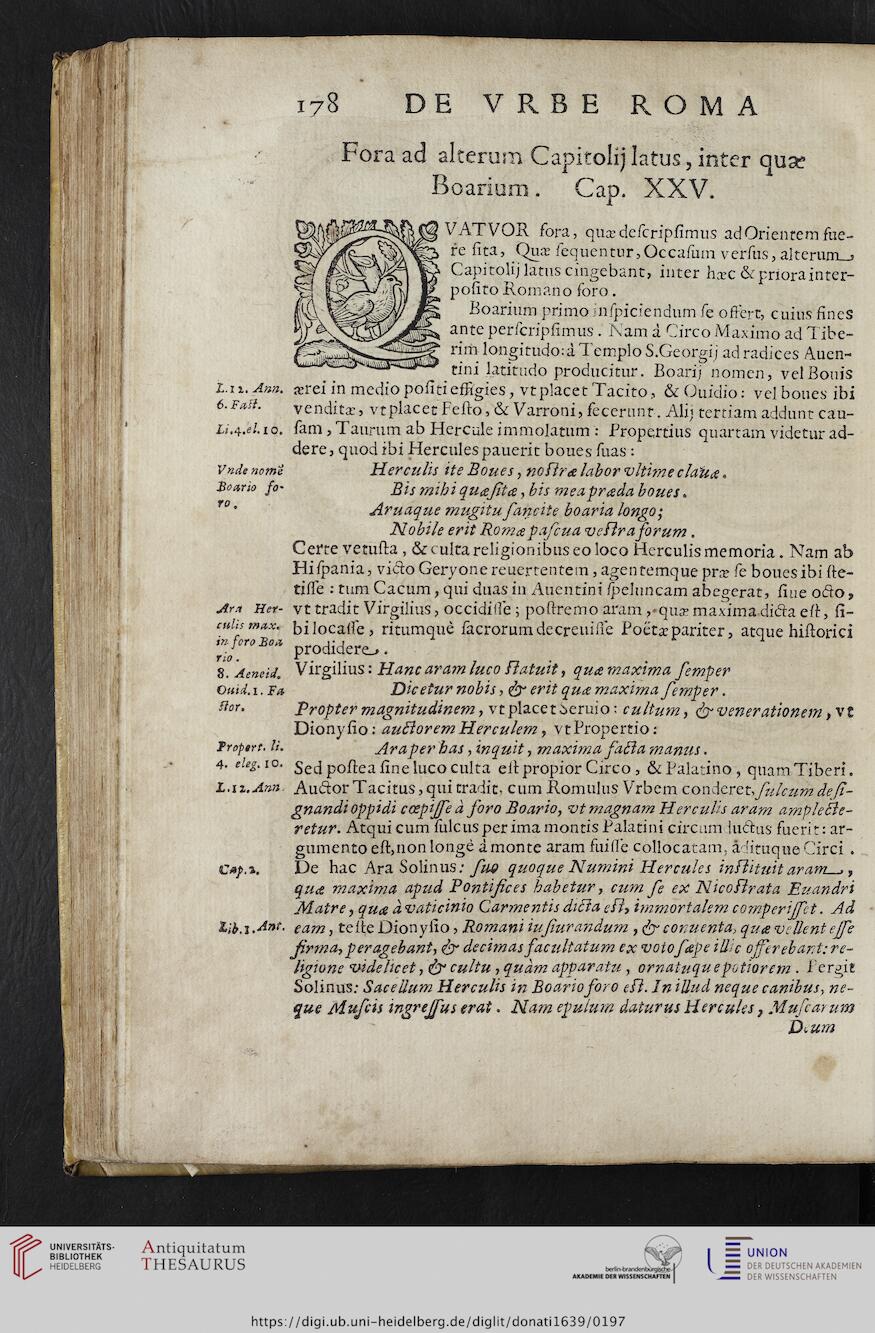 178 DE VRBE ROMA
Fora ad alterum Capitolij latus, inter quæ
Boarium. Cap. XXV.
QVATVOR fora, quæ deſcripſimus ad Orientem fue-
re ſita, Quæ ſequentur, Occaſum verſus, alterum
Capitolij latus cingebant, inter hæc & priora inter-
poſito Romano foro.
Boarium primo inſpiciendum ſe offert, cuius fines
ante perſcripſimus. Nam à Circo Maximo ad Tibe-
rim longitudo: à Templo S. Georgij ad radices Auen-
tini latitudo producitur. Boarij nomen, vel Bouis
L.12. Ann.
ærei in medio poſiti effigies, vt placet Tacito, & Ouidio: vel boues ibi
6. Faſt.
venditæ, vt placet Feſto, & Varroni, fecerunt. Alij tertiam addunt cau-
Li.4.el.10.
ſam, Taurum ab Hercule immolatum: Propertius quartam videtur ad-
dere, quod ibi Hercules pauerit boues ſuas:
Vnde nomē
Herculis ite Boues, noſtræ labor vltime clauæ.
Boario fo-
Bis mihi quæſitæ, bis mea præda boues.
ro.
Aruaque mugitu ſancite boaria longo;
Nobile erit Romæ paſcua veſtra forum.
Certe vetuſta, & culta religionibus eo loco Herculis memoria. Nam ab
Hiſpania, victo Geryone reuertentem, agentemque præ ſe boues ibi ſte-
tiſſe: tum Cacum, qui duas in Auentini ſpeluncam abegerat, ſiue octo,
Ara Her-
vt tradit Virgilius, occidiſſe; poſtremo aram, quæ maxima dicta eſt, ſi-
culis max.
bi locaſſe, ritumquè ſacrorum decreuiſſe Poëtæ pariter, atque hiſtorici
in foro Boa
prodidere.
rio.
8. Aeneid.
Virgilius: Hanc aram luco ſtatuit, quæ maxima ſemper
Ouid.1. Fa
Dicetur nobis, & erit quæ maxima ſemper.
ſtor.
Propter magnitudinem, vt placet Seruio: cultum, & venerationem, vt
Dionyſio: auctorem Herculem, vt Propertio:
Propert. li.
Ara per has, inquit, maxima facta manus.
4. eleg. 10.
Sed poſtea ſine luco culta eſt propior Circo, & Palatino, quam Tiberi.
L.12. Ann.
Auctor Tacitus, qui tradit, cum Romulus Vrbem conderet, ſulcum deſi-
gnandi oppidi cœpiſſe à foro Boario, vt magnam Herculis aram amplecte-
retur. Atqui cum ſulcus per ima montis Palatini circum ductus fuerit: ar-
gumento eſt, non longè à monte aram fuiſſe collocatam, adituque Circi.
Cap.2.
De hac Ara Solinus: ſuo quoque Numini Hercules inſtituit aram,
quæ maxima apud Pontifices habetur, cum ſe ex Nicoſtrata Euandri
Matre, quæ à vaticinio Carmentis dicta eſt, immortalem comperiſſet. Ad
Lib.1. Ant.
eam, teſte Dionyſio, Romani iuſiurandum, & conuenta, quæ vellent eſſe
firma, peragebant, & decimas facultatum ex voto ſæpe illic offerebant: re-
ligione videlicet, & cultu, quàm apparatu, ornatuque potiorem. Pergit
Solinus: Sacellum Herculis in Boario foro eſt. In illud neque canibus, ne-
que Muſcis ingreſſus erat. Nam epulum daturus Hercules, Muſcarum
Deum
UNIVERSITÄTS-
BIBLIOTHEK
HEIDELBERG
Antiquitatum
THESAURUS
berlin-brandenburgische
AKADEMIE DER WISSENSCHAFTEN
UNION
DER DEUTSCHEN AKADEMIEN
DER WISSENSCHAFTEN
https://digi.ub.uni-heidelberg.de/diglit/donati1639/0197